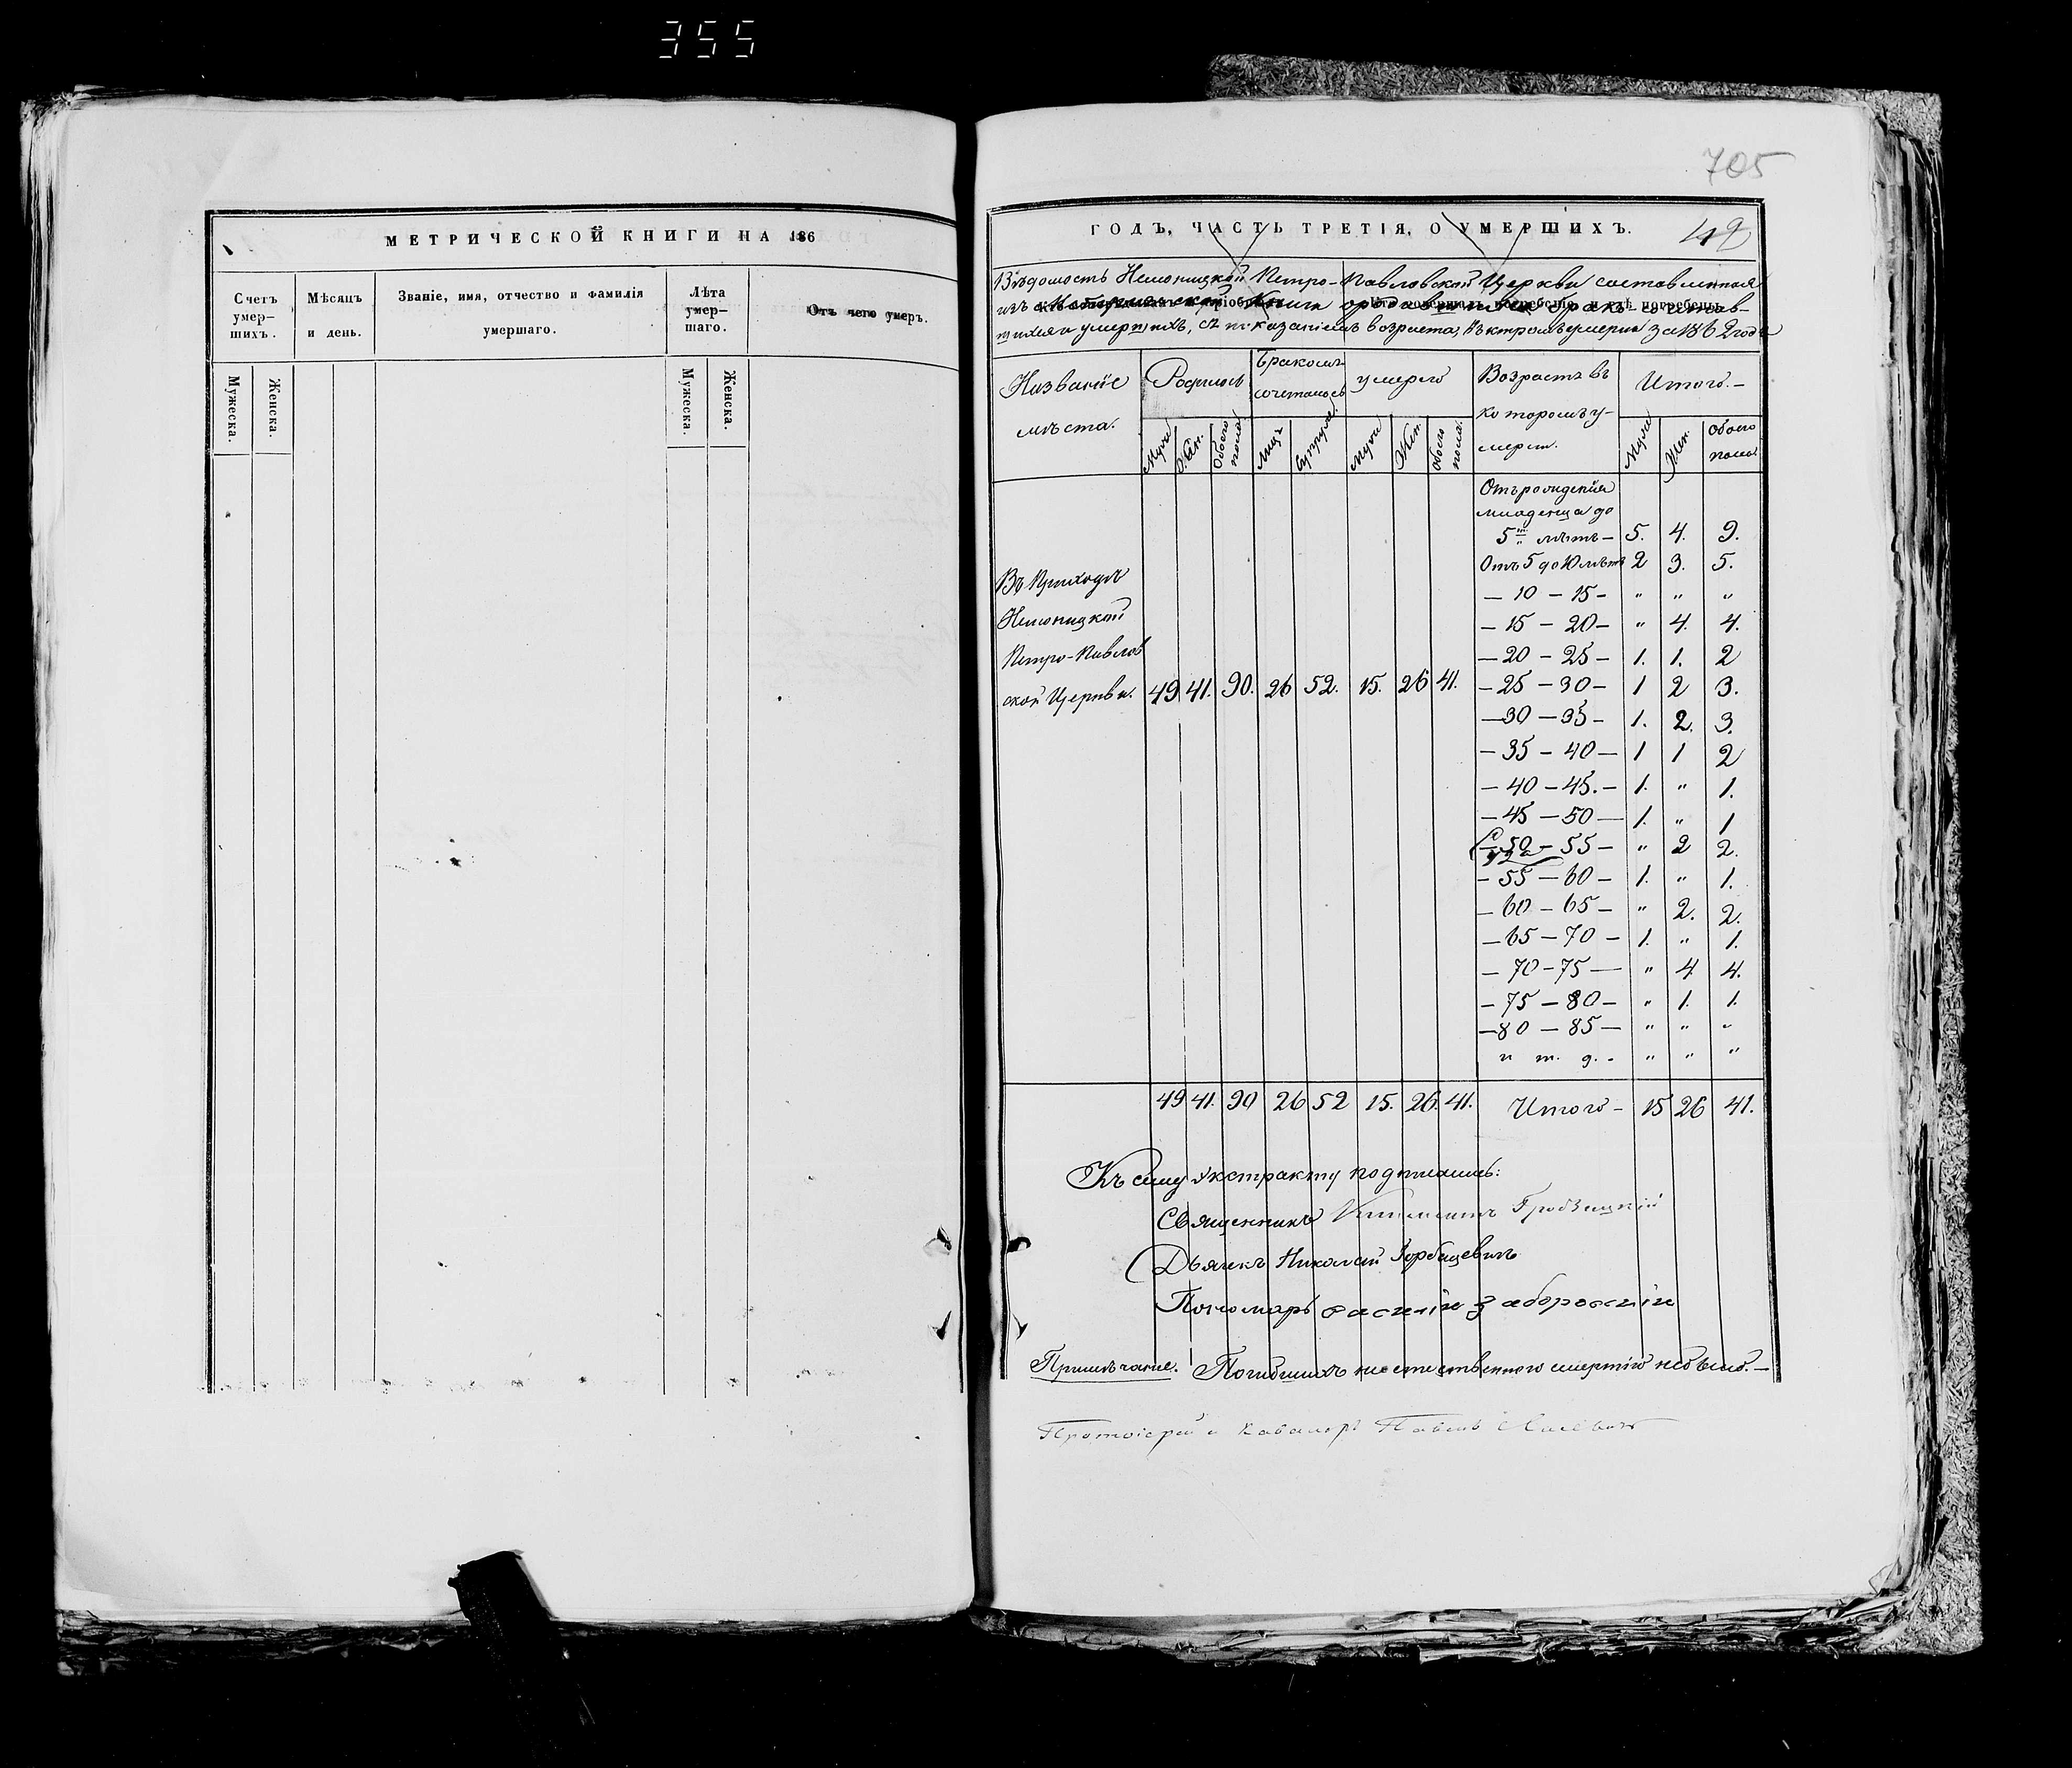 355
МЕТРИЧЕСКОЙ КНИГИ НА 186
Счетъ умер-шихъ.
Мѣсяцъ и день.
Званіе, имя, отчество и фамилія умершаго.
Лѣта умер-шаго.
Отъ чего умеръ.
Мужеска.
Женска.
Мужеска.
Женска.
705
ГОДЪ, ЧАСТЬ ТРЕТІЯ, О УМЕРШИХЪ.
Вѣдомость Петро-Павловской Церкви составленная
изъ Метрической Книги о родившихся бракъ сочетав-
шихся и умершихъ, съ показаніемъ возраста, въ которомъ умерли за 1862 годъ
Названіе мѣста.
Родилось
Бракомъ сочеталось
умерло
Возрастъ въ которомъ у-мерли.
Итого.-
Муж. Жен. Обоего пола.
Лицъ Супруж.
Муж. Жен. Обоего пола.
Муж. Жен. Обоего пола.
Отъ рожденія
младенца до
5ти лѣтъ - 5. 4. 9.
Отъ 5 до 10 лѣтъ 2 3. 5.
- 10 - 15 - " " "
- 15 - 20 - " 4. 4.
- 20 - 25 - 1. 1. 2
- 25 - 30 - 1 2 3.
- 30 - 35 - 1. 2. 3.
- 35 - 40 - 1 1 2
- 40 - 45. - 1. " 1.
- 45 - 50 - 1. " 1
- 50 - 55 - " 2 2.
- 55 - 60 - 1. " 1.
- 60 - 65 - " 2. 2.
- 65 - 70 - 1. " 1.
- 70 - 75 - " 4 4.
- 75 - 80 - " 1. 1.
- 80 - 85 - " " "
и т. д. - " " "
Въ Приходѣ
Петро-Павлов
ской Церкви. 49 41. 90. 26 52. 15. 26 41.
49 41. 90 26 52 15. 26. 41. Итого - 15 26 41.
Къ сему экстракту подписались:
Священникъ
Дьячекъ Николай Горбацевичъ
Пономарь Василій Заборовскій
Примѣчаніе. Погибшихъ неестественною смертію небыло. -
Протоіерей и Кавалеръ Павелъ